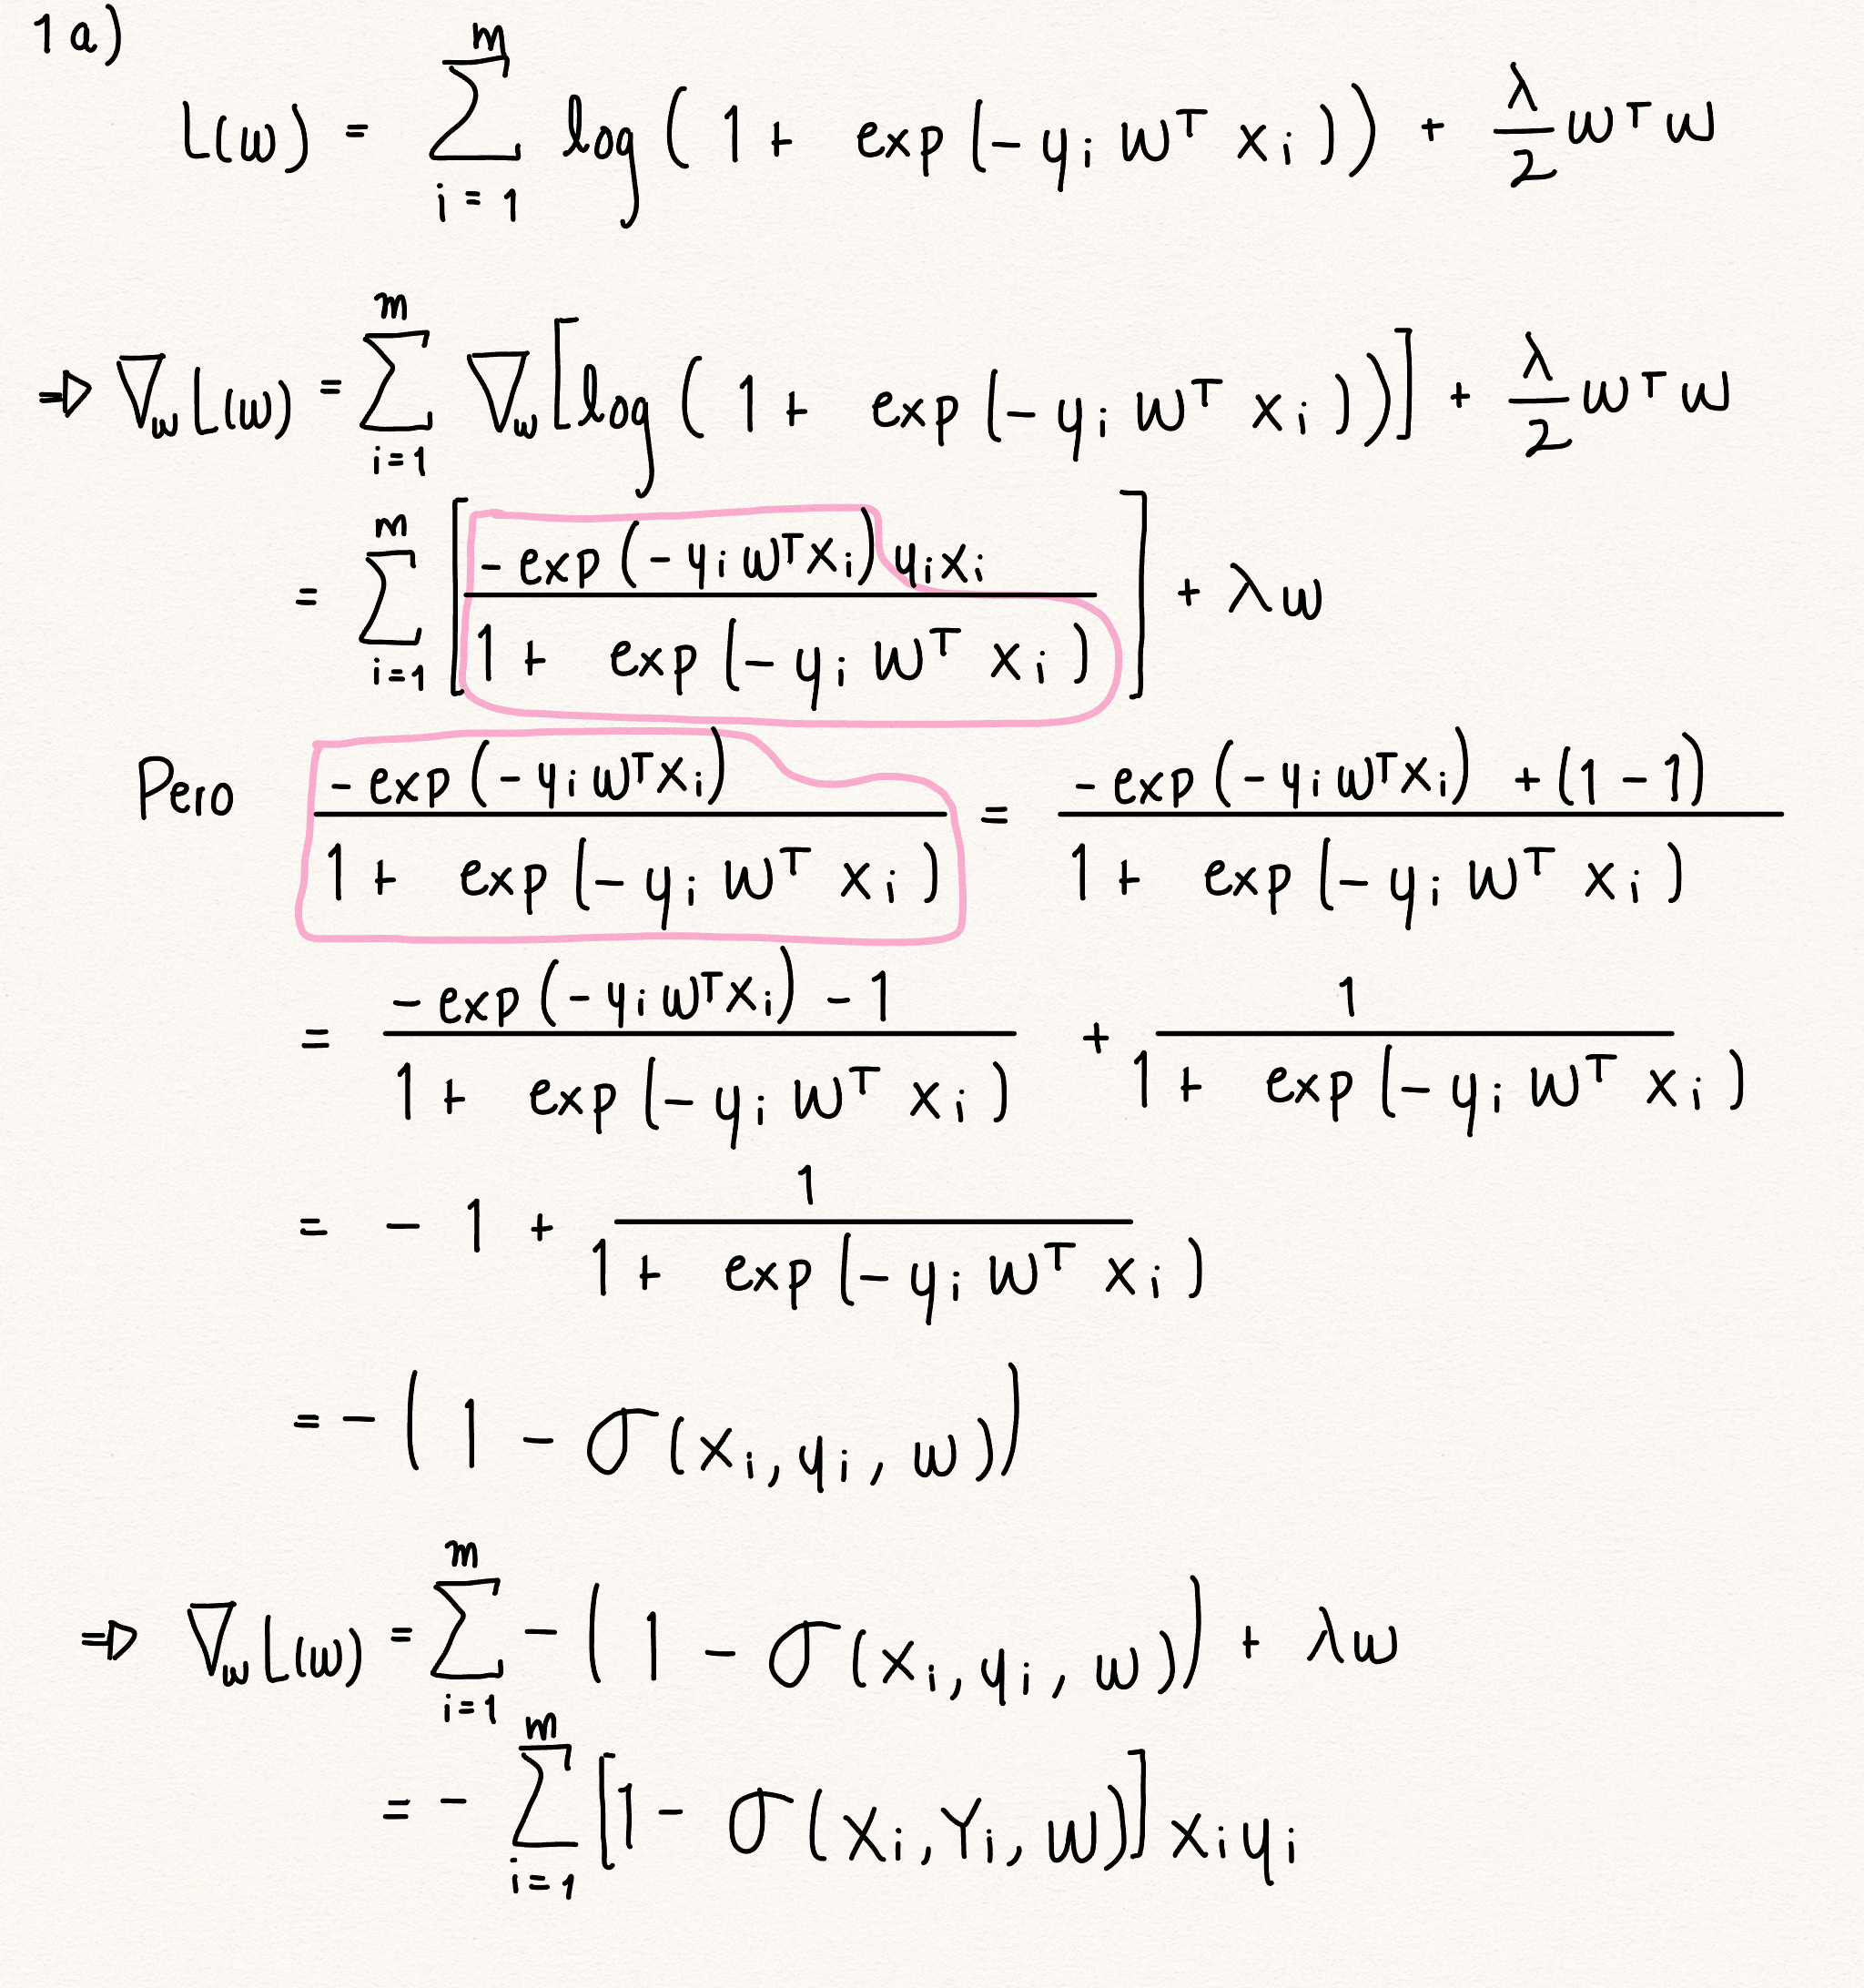 1a)
L(w) = ∑_{i=1}^{m} log(1 + exp(-y_i w^T x_i)) + λ/2 w^T w
⇒ ∇_w L(w) = ∑_{i=1}^{m} ∇_w [log(1 + exp(-y_i w^T x_i))] + λ/2 w^T w
= ∑_{i=1}^{m} [ (-exp(-y_i w^T x_i) y_i x_i) / (1 + exp(-y_i w^T x_i)) ] + λw
Pero (-exp(-y_i w^T x_i)) / (1 + exp(-y_i w^T x_i)) = (-exp(-y_i w^T x_i) + (1 - 1)) / (1 + exp(-y_i w^T x_i))
= (-exp(-y_i w^T x_i) - 1) / (1 + exp(-y_i w^T x_i)) + 1 / (1 + exp(-y_i w^T x_i))
= - 1 + 1 / (1 + exp(-y_i w^T x_i))
= - (1 - σ(x_i, y_i, w))
⇒ ∇_w L(w) = ∑_{i=1}^{m} - (1 - σ(x_i, y_i, w)) + λw
= - ∑_{i=1}^{m} [1 - σ(x_i, Y_i, w)] x_i y_i